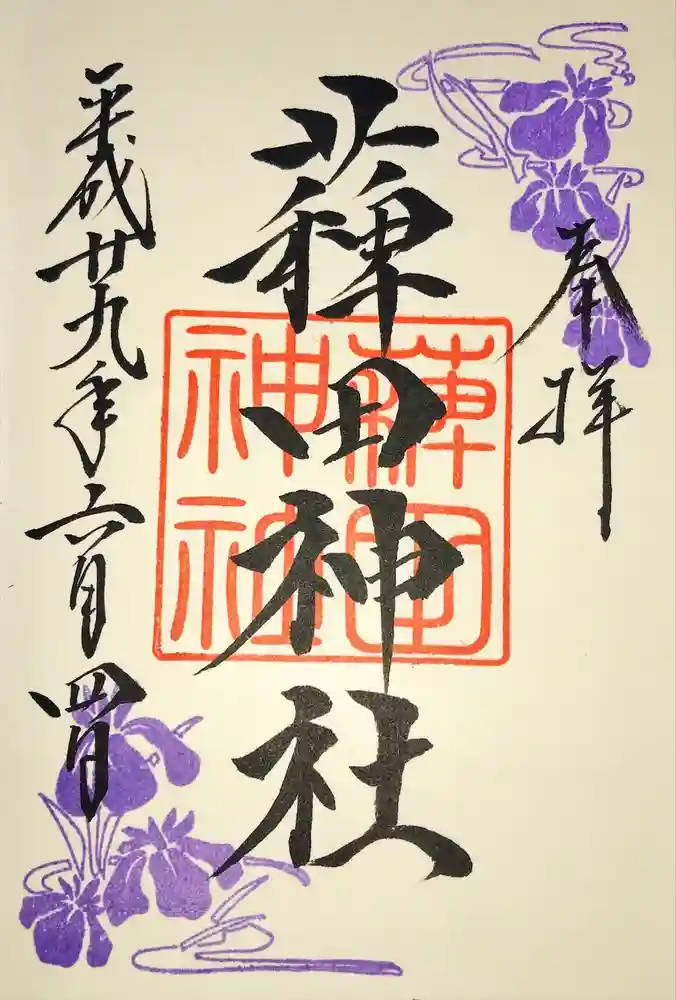 奉拝
薭田神社
薭田
神社
平成廿九年六月四日